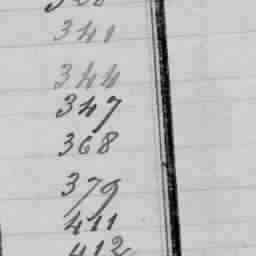 341
344
347
368
379
411
412